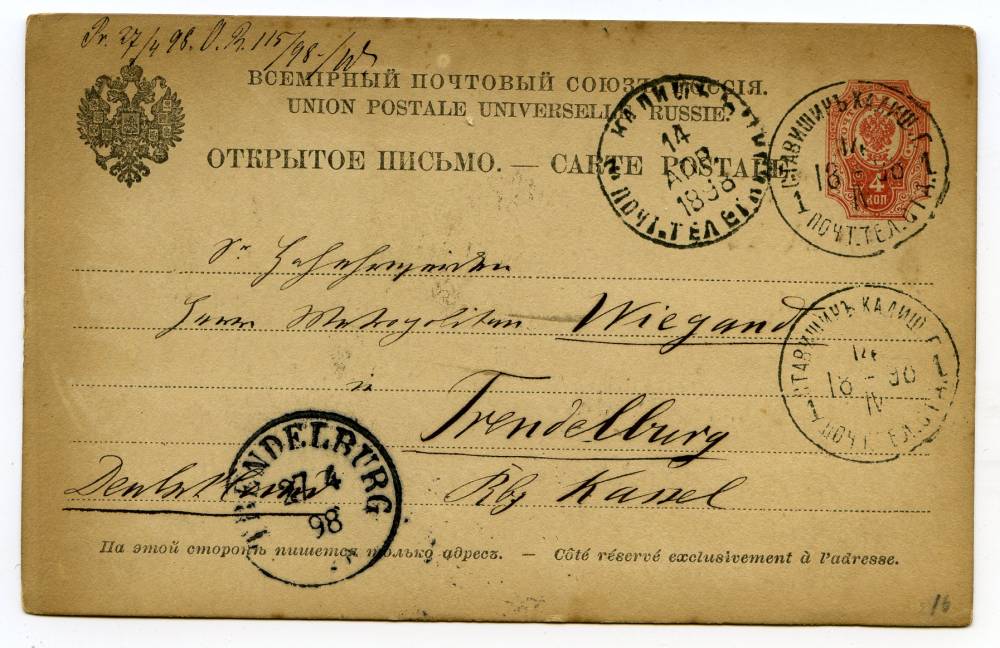 Pr. 27/4 98. O. R. 115/98.
ВСЕМІРНЫЙ ПОЧТОВЫЙ СОЮЗЪ. РОССІЯ.
UNION POSTALE UNIVERSELLE. RUSSIE.
ОТКРЫТОЕ ПИСЬМО. — CARTE POSTALE.
4 КОП
КАЛИШЪ
14
АПР.
1898
ПОЧТ.ТЕЛ.
СТАВИШИНЪ КАЛИШ. Г.
14
18 - 98
IV
1 ПОЧТ.ТЕЛ.ОТД. 1
Sr Hochehrwürden
Herrn Metropolitan Wiegand
СТАВИШИНЪ КАЛИШ. Г.
14
18 - 98
IV
1 ПОЧТ.ТЕЛ.ОТД. 1
in
Trendelburg
Deutschland Rbz Kassel
TRENDELBURG
27 4
98
На этой сторонѣ пишется только адресъ. — Côté réservé exclusivement à l'adresse.
16